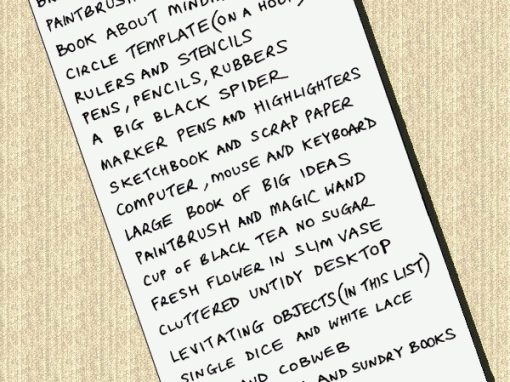 PAINTBRUSH
BOOK ABOUT
CIRCLE TEMPLATE (ON A HOOK)
RULERS AND STENCILS
PENS, PENCILS, RUBBERS
A BIG BLACK SPIDER
MARKER PENS AND HIGHLIGHTERS
SKETCHBOOK AND SCRAP PAPER
COMPUTER, MOUSE AND KEYBOARD
LARGE BOOK OF BIG IDEAS
PAINTBRUSH AND MAGIC WAND
CUP OF BLACK TEA NO SUGAR
FRESH FLOWER IN SLIM VASE
CLUTTERED UNTIDY DESKTOP
LEVITATING OBJECTS (IN THIS LIST)
SINGLE DICE AND WHITE LACE
AND COBWEB
AND SUNDRY BOOKS